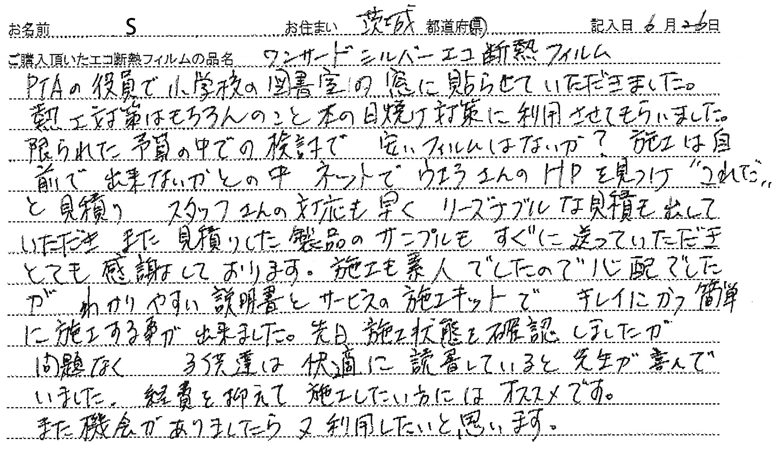 お名前 S お住まい 茨城 都道府県 記入日 6月26日
ご購入頂いたエコ断熱フィルムの品名 ワンサードシルバーエコ断熱フィルム
PTAの役員で小学校の図書室の窓に貼らせていただきました。
熱エ対策はもちろんのこと本の日焼け対策に利用させてもらいました。
限られた予算の中での検討で 安いフィルムはないか? 施工は自
前で出来ないかとの中 ネットでウエラさんのHPを見つけ"これだ"
と見積り スタッフさんの対応も早く リーズナブルな見積も出して
いただき また見積りした製品のサンプルもすぐに送っていただき
とても感謝しております。施工も素人でしたので心配でした
が わかりやすい説明書とサービスの施工キットで キレイにかつ簡単
に施工する事が出来ました。先日施工状態を確認しましたが
問題なく 子供達は快適に読書していると先生が喜んで
いました。経費を抑えて施工したい方にはオススメです。
また機会がありましたら又利用したいと思います。